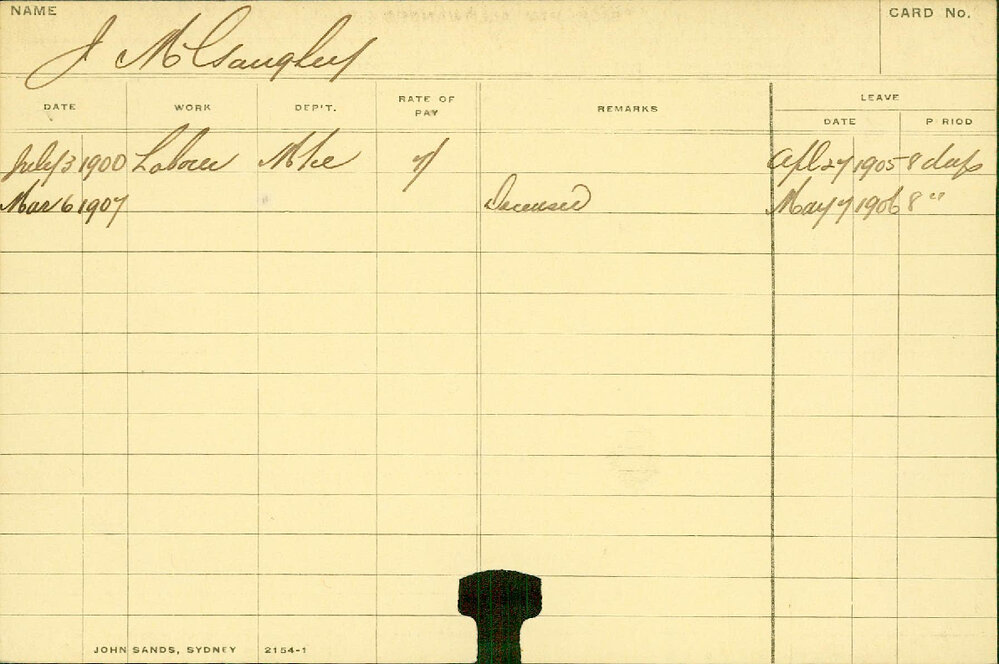 NAME
CARD No.
J McGaughey
DATE WORK DEP'T. RATE OF PAY REMARKS LEAVE
DATE P RIOD
July 3 1900 Labourer 7/ Apl 27 1905 8 days
Mar 6 1907 Deceased May 7 1906 8 "
JOHN SANDS, SYDNEY 2154-1